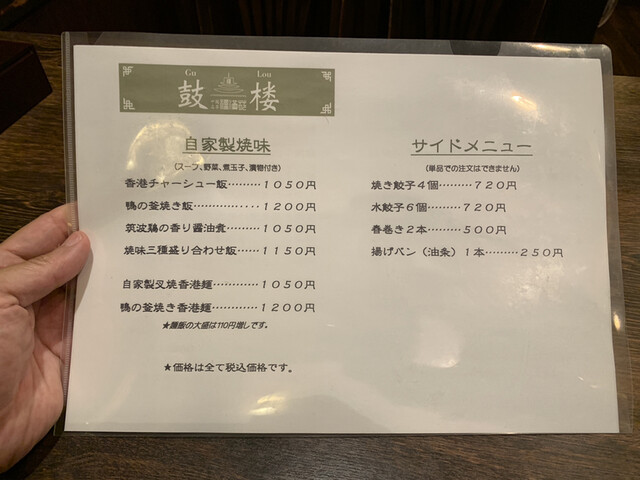 Gu Lou
鼓 楼
自家製焼味
(スープ、野菜、煮玉子、漬物付き)
香港チャーシュー飯………１０５０円
鴨の釜焼き飯……………１２００円
筑波鶏の香り醤油煮………１０５０円
焼味三種盛り合わせ飯……１１５０円
自家製叉焼香港麺…………１０５０円
鴨の釜焼き香港麺…………１２００円
★麺飯の大盛は110円増しです。
★価格は全て税込価格です。
サイドメニュー
(単品での注文はできません)
焼き餃子４個………７２０円
水餃子６個…………７２０円
春巻き２本…………５００円
揚げパン（油条）１本………２５０円